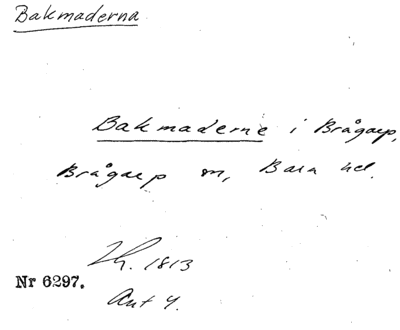 Bakmaderna
Bakmaderne i Brågarp,
Brågarp sn, Bara hd.
Lh. 1813
Nr 6297.
Akt 4.